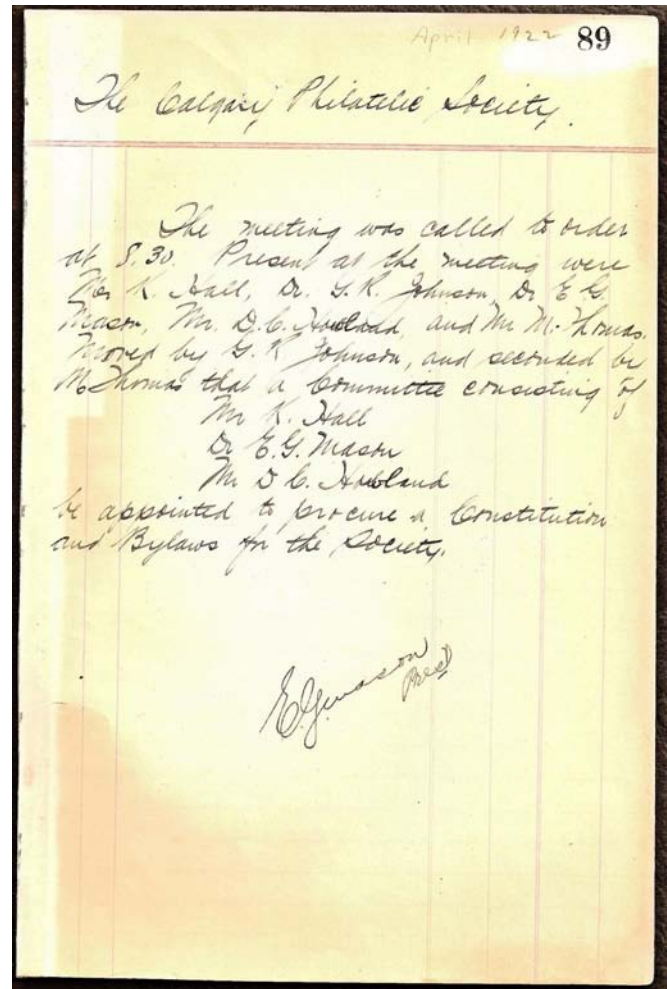 April 1922 89
The Calgary Philatelic Society.
The meeting was called to order
at 8.30. Present at the meeting were
Mr K. Hall, Dr. G.R. Johnson, Dr E.G.
Mason, Mr. D.C. Howland, and Mr M. Thomas.
Moved by G.R Johnson, and seconded by
M Thomas that a Committee consisting of
Mr K. Hall
Dr E.G. Mason
Mr D C. Howland
be appointed to procure a Constitution
and Bylaws for the Society.
EGMason
Pres